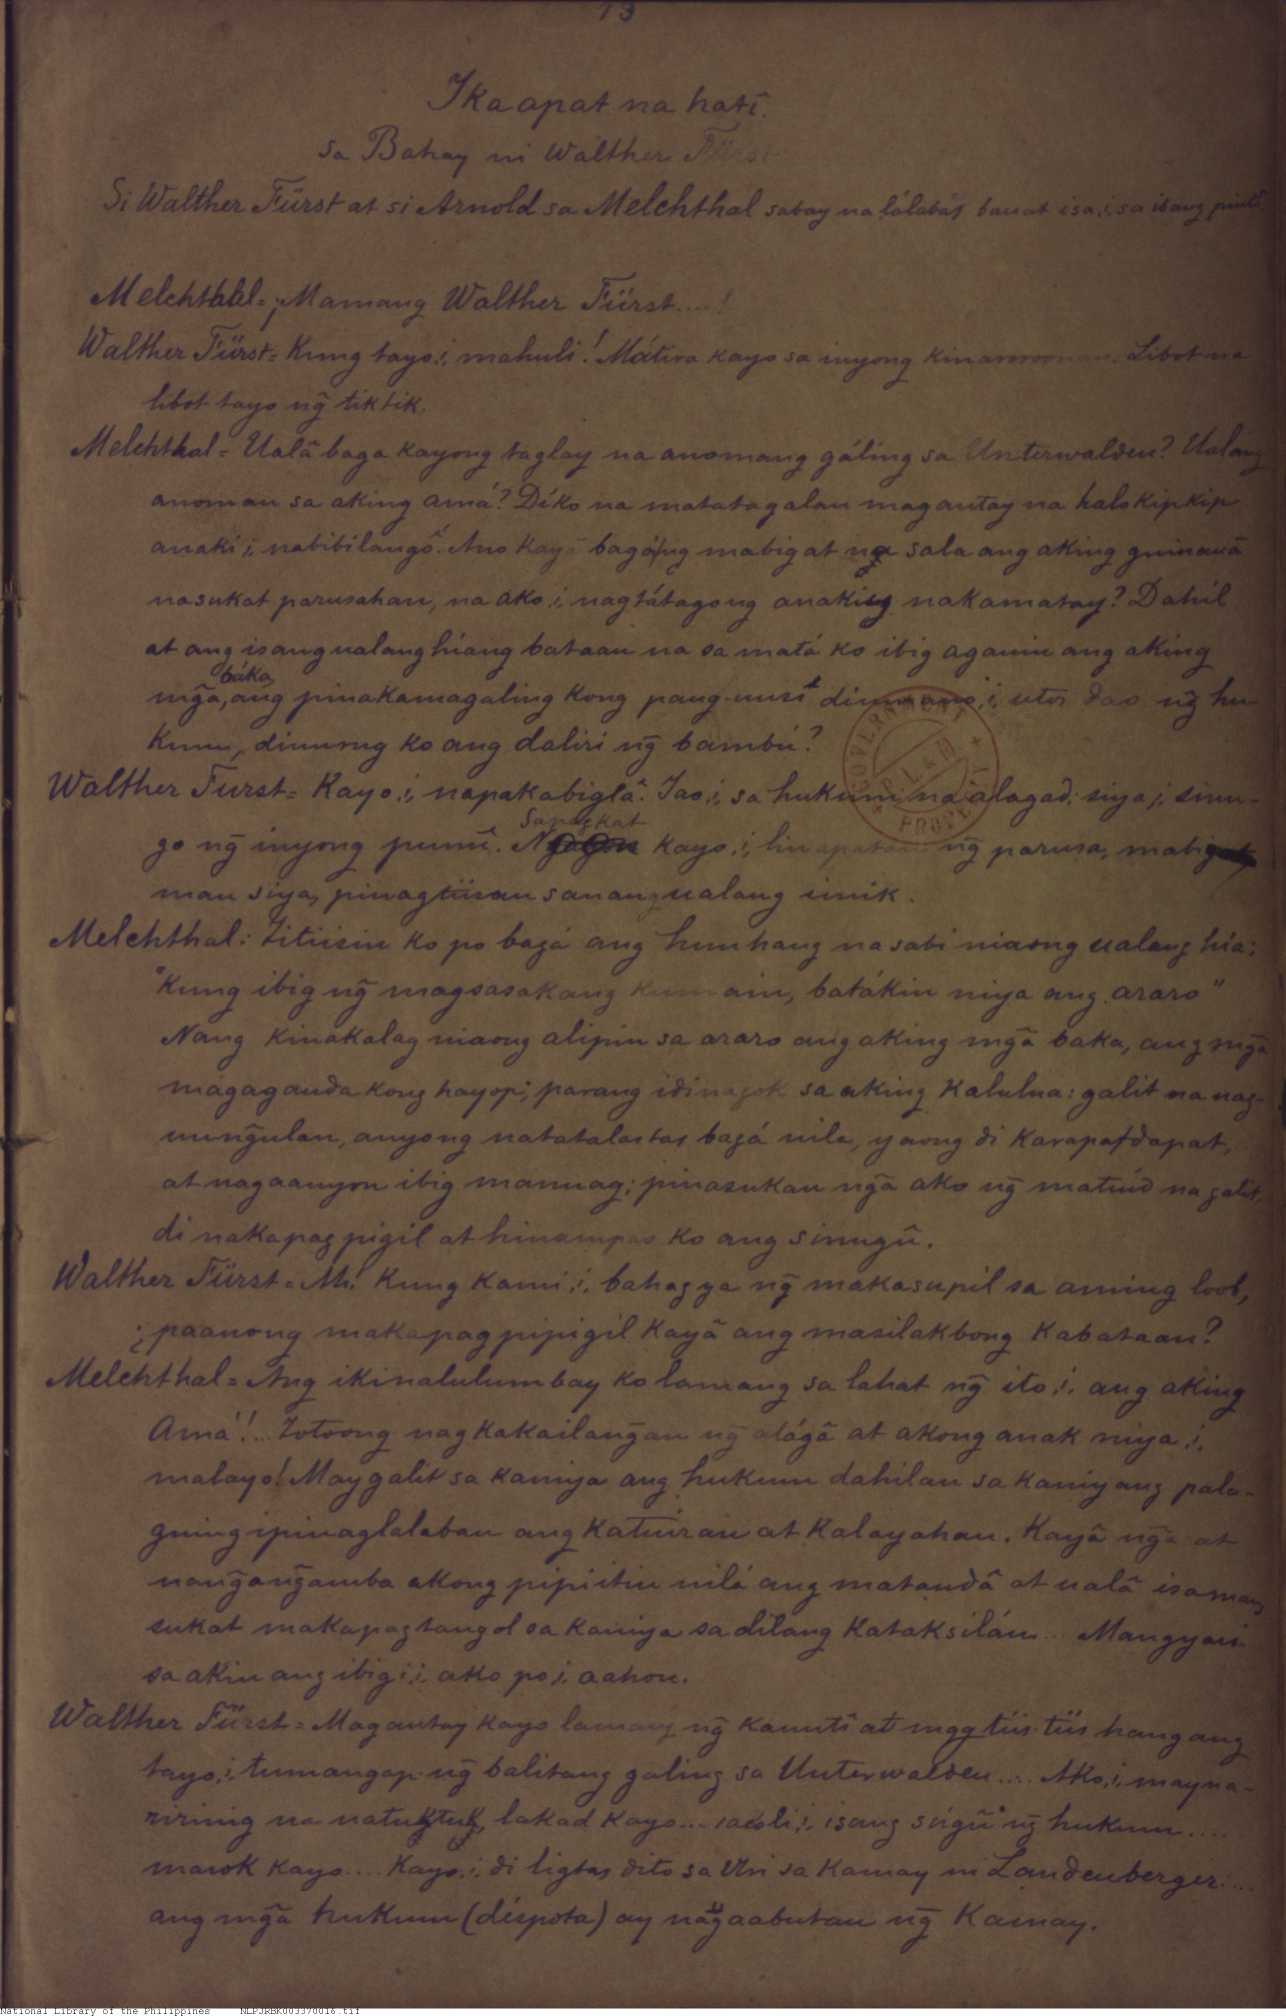 13
Ika apat na hatî.
sa Bahay ni Walther Fürst
Si Walther Fürst at si Arnold sa Melchthal sabay na lálabás bauat isa,i, sa isang pintô
Melchthal = ¡Mamang Walther Fürst....!
Walther Fürst = Kung tayo,i, mahuli! Mátira kayo sa inyong kinaroroonan. Libot na
libot tayo ng̃ tiktik.
Melchthal = Ualâ baga kayong taglay na anomang gáling sa Unterwalden? Ualang
anoman sa aking amá? Díko na matatagalan magantay na halokipkip
anaki,i, nabibilangô. Ano kayâ bagá ang mabigat na sala ang aking guinawâ
na sukat parusahan, na ako,i, nagtátagong anaking nakamatay? Dahil
at ang isang ualang híang bataan na sa matá ko ibig agawin ang aking
mg̃a báka, ang pinakamagaling kong pang-uusí dinurano,i, utos dao ng̃ hu-
kum, dinurog ko ang daliri ng̃ bambú?
Walther Furst = Kayo,i, napakabiglâ. Iao,i, sa hukum na alagad: siya,i, sinu-
go ng̃ inyong punû. Sapagkat kayo,i, linapatan ng̃ parusa, mabigat
man siya, pinagtiisan sanang ualang imik.
Melchthal: Titiisin ko po bagá ang hunhang na sabi niaong ualang hía:
"Kung ibig ng̃ magsasakang kumain, batákin niya ang araro"
Nang kinakalag niaong alipin sa araro ang aking mg̃a baka, ang mg̃a
magaganda kong hayop; parang idinagok sa aking kalulua: galit na nag-
uung̃ulan, anyong natatalastas bagá nila, yaong di karapatdapat,
at nagaanyon ibig manuag; pinasukan ng̃a ako ng̃ matuíd na galit,
di nakapagpigil at hinampas ko ang sinugû.
Walther Fürst = Ah! Kung kami,i, bahagya ng̃ makasupil sa aming loob,
¿paanong makapagpipigil kayâ ang masilakbong kabataan?
Melchthal = Ang ikinalulumbay ko lamang sa lahat ng̃ ito,i, ang aking
Amá!... Totoong nagkakailang̃an ng̃ alágâ at akong anak niya,i,
malayo! May galit sa kaniya ang hukum dahilan sa kaniyang pala-
guing ipinaglalaban ang katuiran at kalayahan. Kayâ ng̃a at
nang̃ang̃amba akong pipiitin nilá ang matandâ at ualâ isa mang
sukat makapagtangol sa kaniya sa dilang kataksilán... Mangyari
sa akin ang ibig,i, ako po,i, aahon.
Walther Fürst = Magantay kayo lamang ng̃ kauntî at magtiis-tiis hangang
tayo,i, tumangap ng̃ balitang galing sa Unterwalden.... Ako,i, may na-
ririnig na natuktuk, lakad kayo... isang súgû ng̃ hukum....
masok kayo.... Kayo,i, di ligtas dito sa Uri sa kamay ni Landenberger....
ang mg̃a hukum (déspota) ay nagaabutan ng̃ kamay.
GOVERNMENT
P. I. & R.
PROPERTY
National Library of the Philippines NLPJRBK003370016.tif